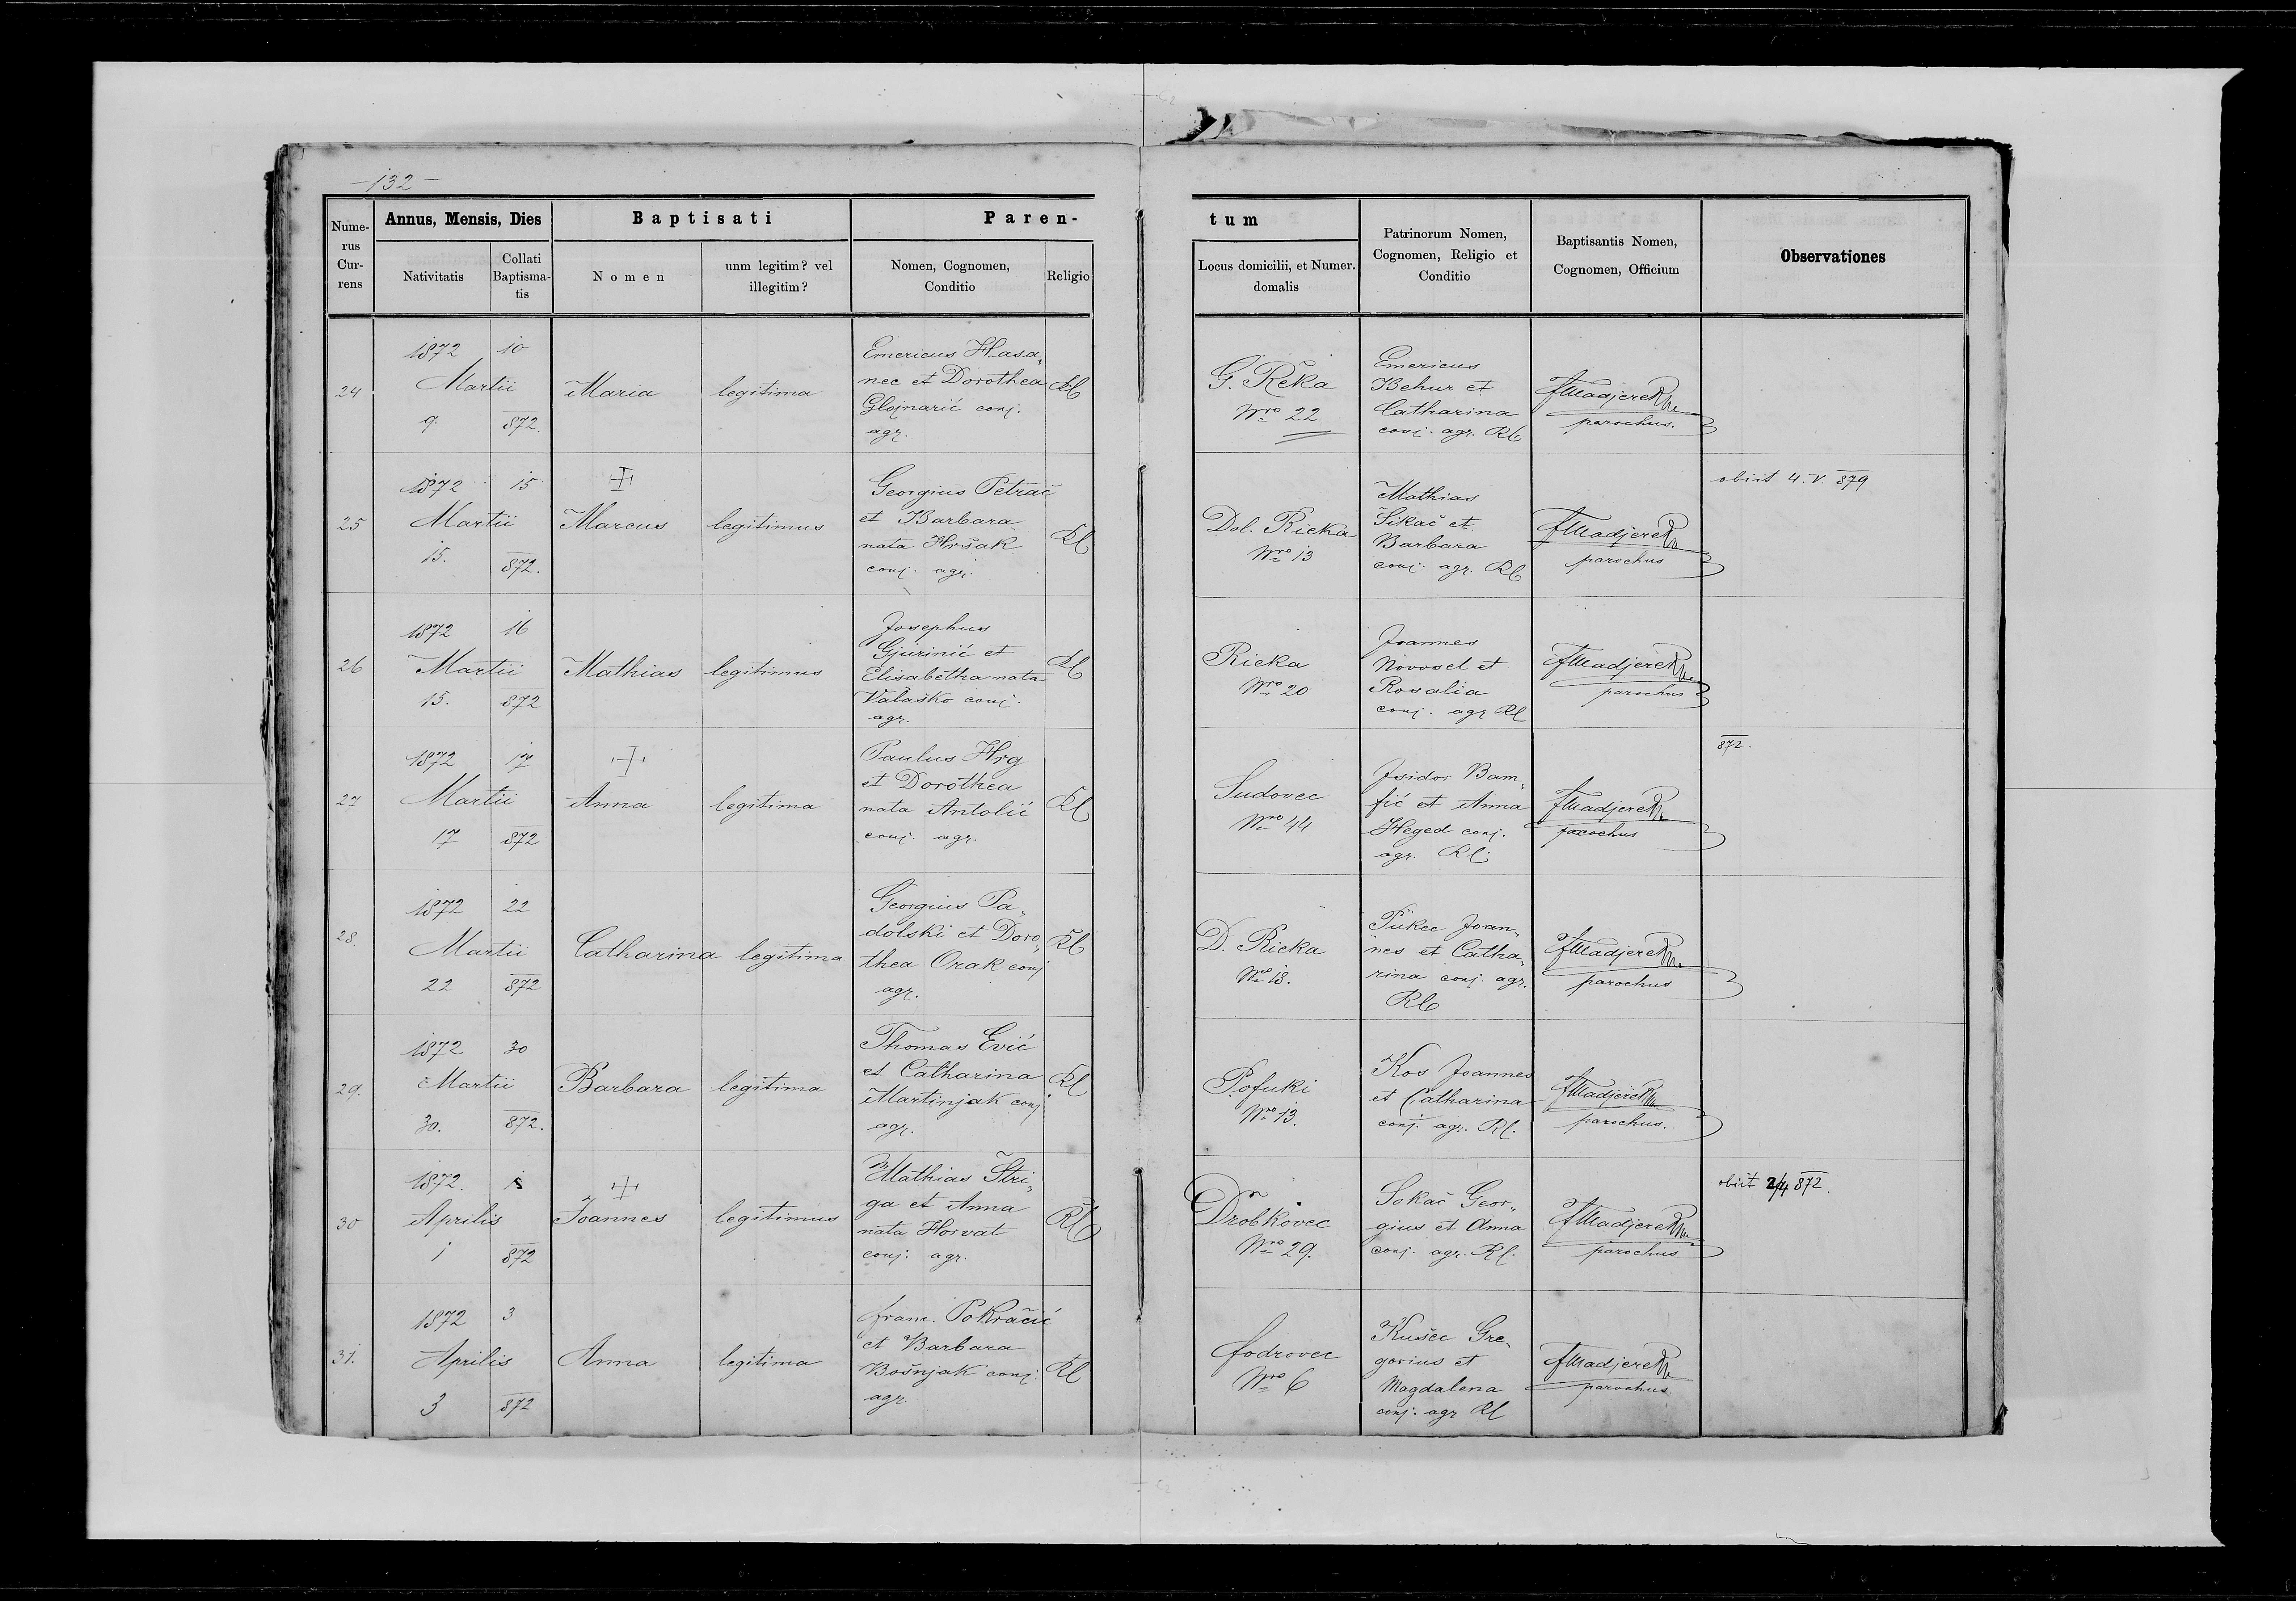 -132-
Nume-
rus
Cur-
rens
Annus, Mensis, Dies
Nativitatis
Collati
Baptisma-
tis
Baptisati
Nomen
unm legitim? vel
illegitim?
Paren-
Nomen, Cognomen,
Conditio
Religio
tum
Locus domicilii, et Numer.
domalis
Patrinorum Nomen,
Cognomen, Religio et
Conditio
Baptisantis Nomen,
Cognomen, Officium
Observationes
24
1872
Martii
9.
10
872.
Maria
legitima
Emericus Hasa„
nec et Dorothea
Glojnarić conj.
agr.
RC
G. Rěka
Nro 22
Emericus
Behur et
Catharina
conj. agr. RC
parochus.
25
1872
Martii
15.
15
872.
Marcus
legitimus
Georgius Petrač
et Barbara
nata Hršak
conj. agr.
RC
Dol. Rieka
Nro 13
Mathias
Sikač et
Barbara
conj. agr. RC
parochus
obiit 4. V. 879
26
1872
Martii
15.
16
872
Mathias
legitimus
Josephus
Gjurinić et
Elisabetha nata
Valaško conj.
agr.
RC
Rieka
Nro 20
Joannes
Novosel et
Rosalia
conj. agr RC
parochus
27
1872
Martii
17
17
872
Anna
legitima
Paulus Hrg
et Dorothea
nata Antolić
conj. agr.
RC
Sudovec
Nro 44
Isidor Bam„
fić et Anna
Heged conj.
agr. RC
parochus
872.
28.
1872
Martii
22
22
872
Catharina
legitima
Georgius Pa„
dolski et Doro„
thea Orak conj
agr.
RC
D. Rieka
Nro 18.
Pukec Joan„
nes et Catha„
rina conj. agr.
RC
parochus
29.
1872
Martii
30.
30
872.
Barbara
legitima
Thomas Ević
et Catharina
Martinjak conj
agr.
RC
Pofuki
Nro 13.
Kos Joannes
et Catharina
conj. agr. RC.
parochus.
30
1872.
Aprilis
1
872
Joannes
legitimus
Mathias Stri„
ga et Anna
nata Horvat
conj. agr.
RC
Drobkovec
Nro 29.
Sokač Geor„
gius et Anna
conj. agr. RC.
parochus
obiit 2/4 872.
31.
1872
Aprilis
3
3
872
Anna
legitima
franc. Pokračić
et Barbara
Bošnjak conj.
agr.
RC
fodrovec
Nro 6
Kušec Gre„
gorius et
Magdalena
conj. agr RC
parochus